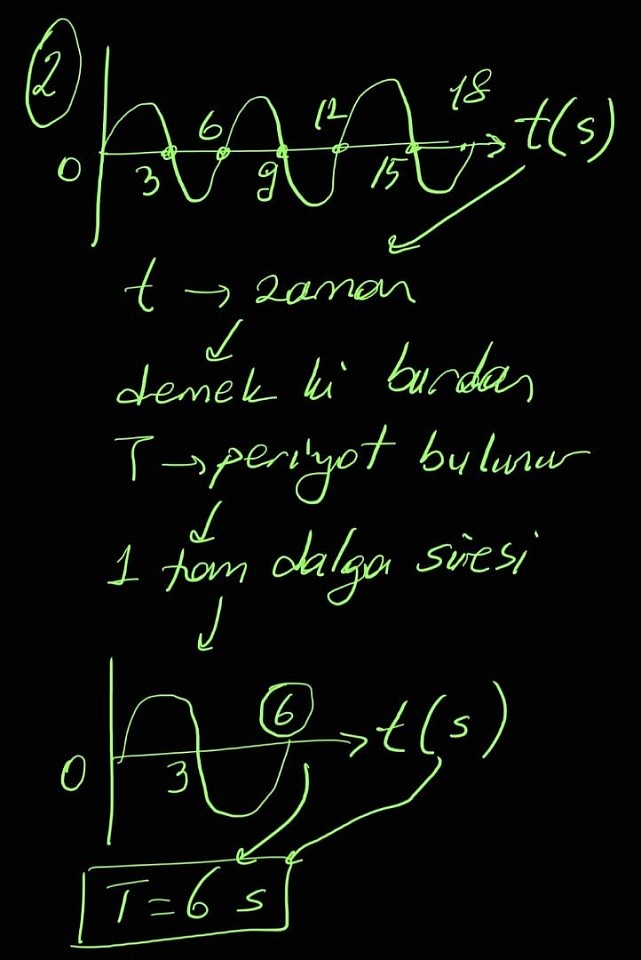 2
6 12 18
t(s)
0 3 9 15
t → zaman
demek ki burdan
T → periyot bulunur
1 tam dalga süresi
6
t(s)
0 3
T = 6 s